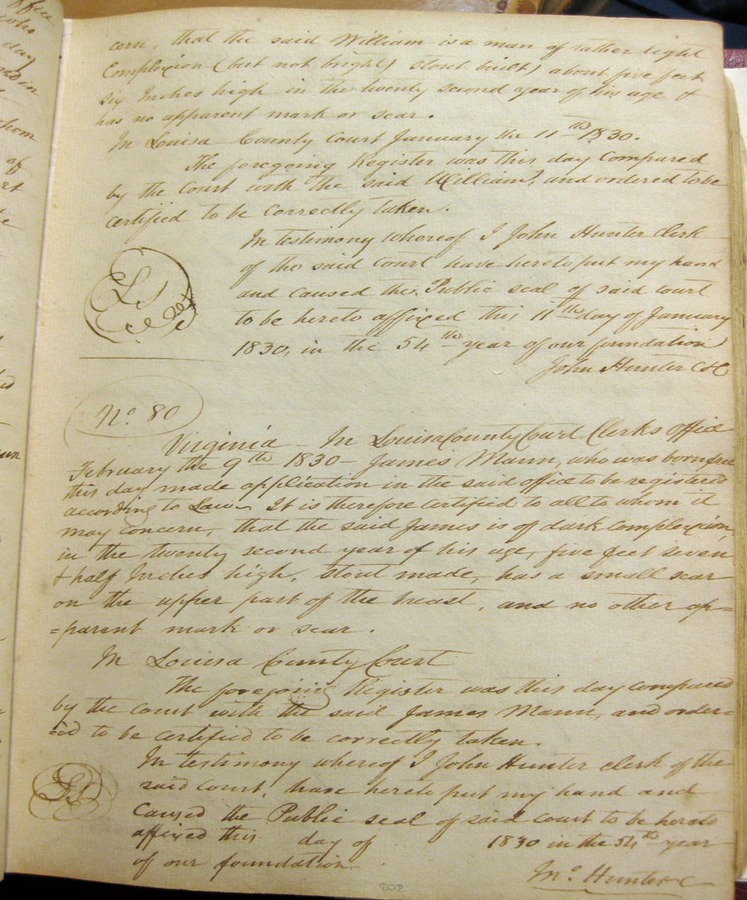 cern, that the said William is a man of rather light
Complexion (but not bright) stout built, about five feet
six Inches high in the twenty second year of his age &
has no apparent mark or scar.
In Louisa County Court January the 11th 1830.
The foregoing Register was this day Compared
by the Court with the said William, and ordered to be
certified to be Correctly taken.
In testimony whereof I John Hunter Clerk
of the said Court have hereto put my hand
and caused the Public seal of said court
to be hereto affixed this 11th day of January
1830, in the 54th year of our foundation
John Hunter
No. 80
Virginia - In Louisa County Court Clerks office
February the 9th 1830 - James Mann, who was born free
this day made application in the said office to be registered
according to Law. It is therefore certified to all to whom it
may concern, that the said James is of dark Complexion,
in the twenty second year of his age, five feet seven
& half Inches high, stout made, has a small scar
on the upper part of the breast, and no other ap=
=parent mark or scar.
In Louisa County Court
The foregoing Register was this day compared
by the court with the said James Mann, and order=
=ed to be certified to be correctly taken.
In testimony whereof I John Hunter clerk of the
said court, have hereto put my hand and
caused the Public seal of said court to be hereto
affixed this day of 1830 in the 54th year
of our foundation
Jno. Hunter